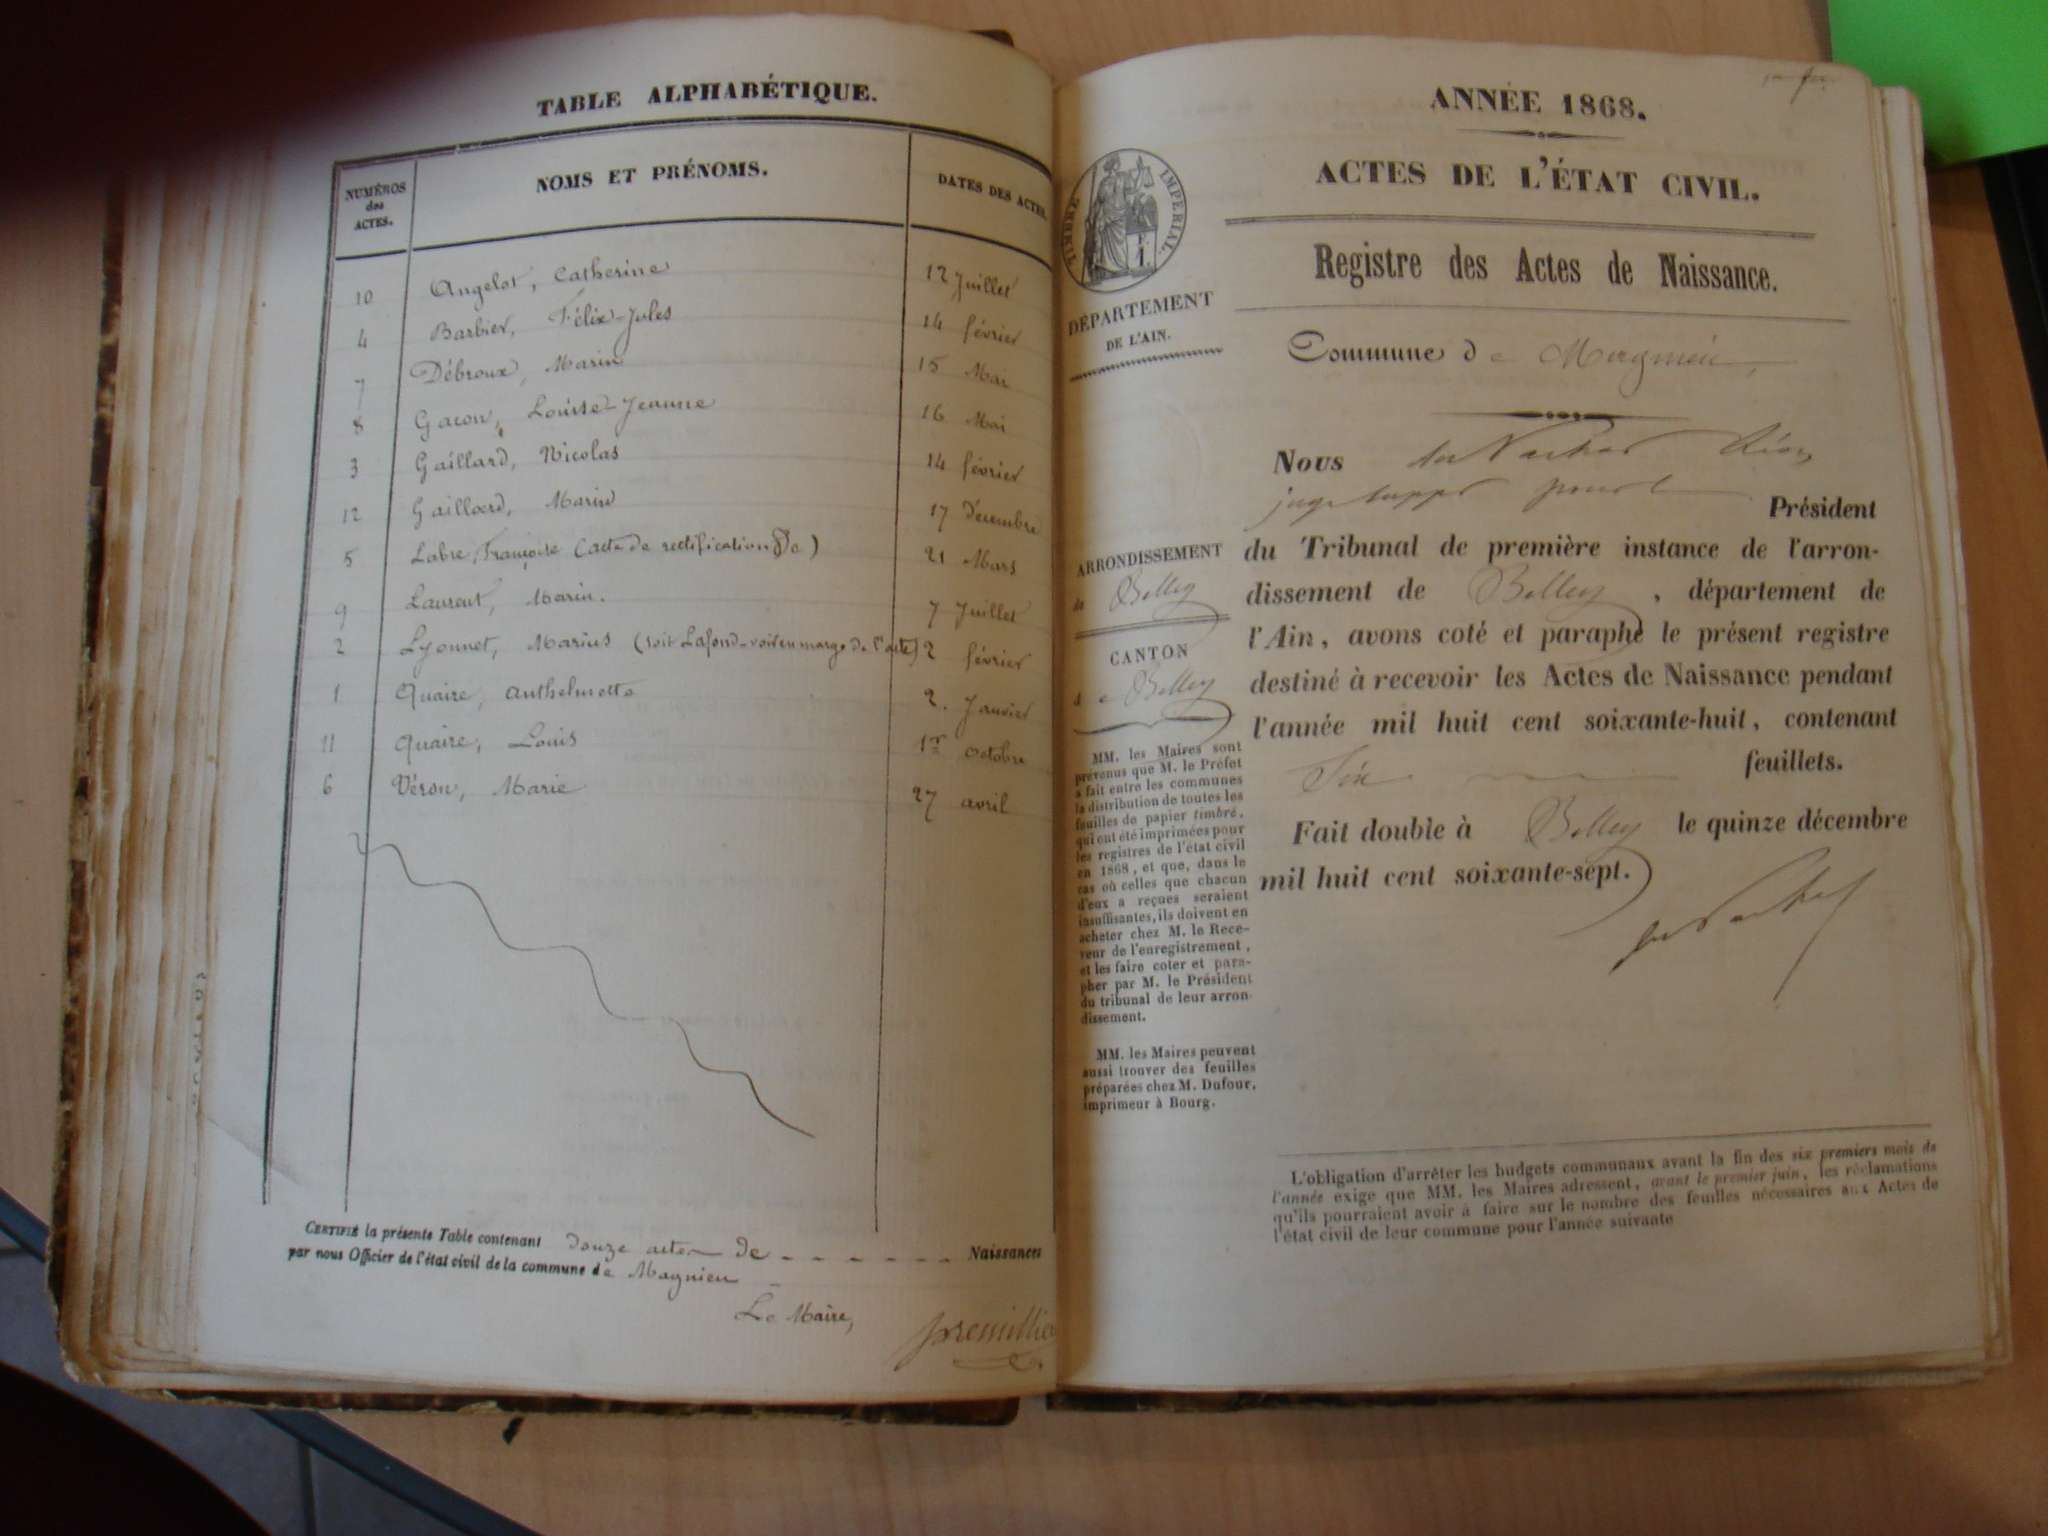 TABLE ALPHABÉTIQUE.
NUMÉROS
des
ACTES.
NOMS ET PRÉNOMS.
DATES DES ACTES.
10 Angelot, Catherine 12 Juillet
4 Barbier, Félix-Jules 14 février
7 Débroux, Marin 15 Mai
8 Gacon, Louise-Jeanne 16 Mai
3 Gaillard, Nicolas 14 février
12 Gaillard, Marin 17 Décembre
5 Labre, Françoise (acte de rectification de) 21 Mars
9 Laurent, Marin. 7 Juillet
2 Lyonnet, Marius (soit Lafond-voir en marge de l'acte) 2 février
1 Quaire, Anthelmette 2. Janvier
11 Quaire, Louis 1er octobre
6 Véron, Marie 27 avril
CERTIFIÉ la présente Table contenant douze actes de Naissances
par nous Officier de l'état civil de la commune de Magnieu
Le Maire,
premillieu
ANNÉE 1868.
ACTES DE L'ÉTAT CIVIL.
TIMBRE IMPÉRIAL
Registre des Actes de Naissance.
DÉPARTEMENT
DE L'AIN.
Commune de Magnieu,
ARRONDISSEMENT
de Belley
CANTON
de Belley
MM. les Maires sont
prévenus que M. le Préfet
a fait entre les communes
la distribution de toutes les
feuilles de papier timbré,
qui ont été imprimées pour
les registres de l'état civil
en 1868, et que, dans le
cas où celles que chacun
d'eux a reçues seraient
insuffisantes, ils doivent en
acheter chez M. le Rece-
veur de l'enregistrement,
et les faire coter et para-
pher par M. le Président
du tribunal de leur arron-
dissement.
MM. les Maires peuvent
aussi trouver des feuilles
préparées chez M. Dufour,
imprimeur à Bourg.
Nous
juge suppt pour le Président
du Tribunal de première instance de l'arron-
dissement de Belley, département de
l'Ain, avons coté et paraphé le présent registre
destiné à recevoir les Actes de Naissance pendant
l'année mil huit cent soixante-huit, contenant
Six feuillets.
Fait double à Belley le quinze décembre
mil huit cent soixante-sept.
L'obligation d'arrêter les budgets communaux avant la fin des six premiers mois de
l'année exige que MM. les Maires adressent, avant le premier juin, les réclamations
qu'ils pourraient avoir à faire sur le nombre des feuilles nécessaires aux Actes de
l'état civil de leur commune pour l'année suivante